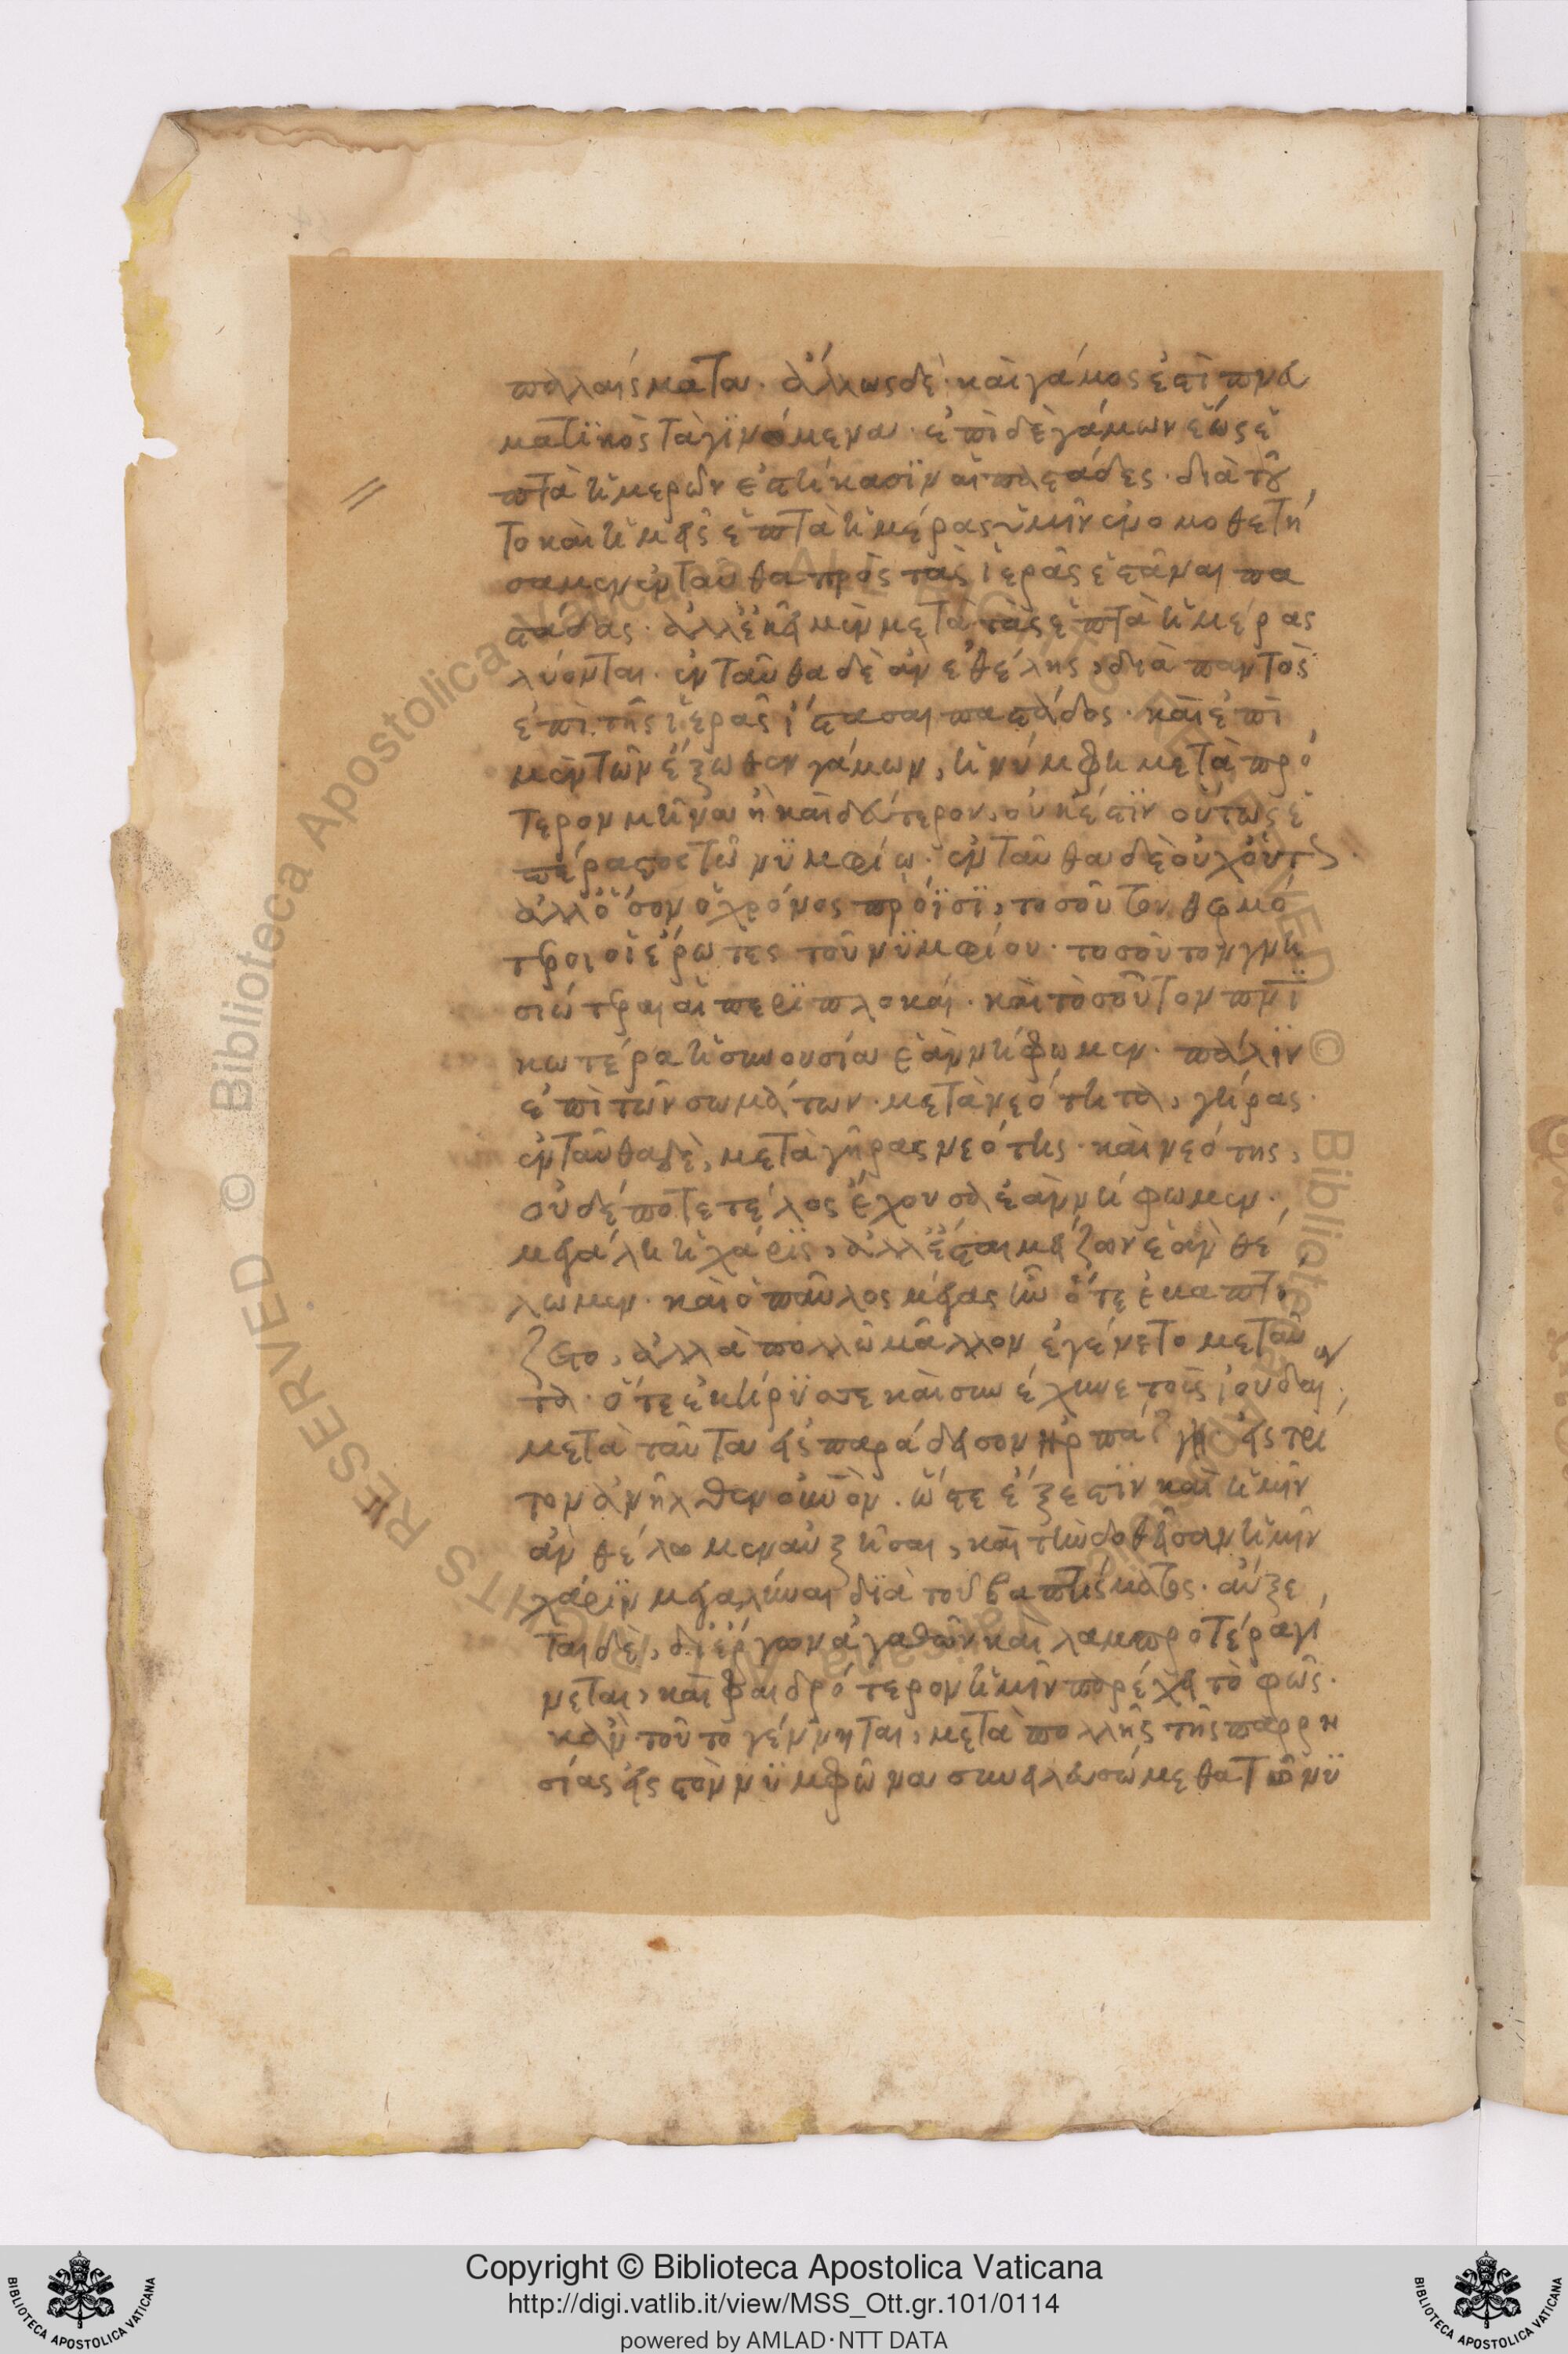 παλλαίσματα. ἄλλως δὲ καὶ γάμος ἐστὶ πνευ
ματϊκὸς τὰ γϊνόμενα. ἐπὶ δὲ γάμων ἕως ἑ
πτὰ ἡμερῶν ἑστήκασϊν αἱ παστάδες. διὰ τοῦ
το καὶ ἡμεῖς ἑπτὰ ἡμέρας ὑμῖν ἐνομοθετή
σαμεν ἐνταῦθα πρὸς τὰς ἱερὰς ἑστάναι πα
στάδας. ἀλλ' ἐκεῖ μὲν μετὰ τὰς ἑπτὰ ἡμέρας
λύονται. ἐνταῦθα δὲ ἂν ἐθέλης, διὰ παντὸς
ἐπὶ τῆς ἱερᾶς ἵστασαι παστάδος. καὶ ἐπὶ
μὲν τῶν ἔξωθεν γάμων, ἡ νύμφη μετὰ πρό
τερον μῆνα ἢ καὶ δεύτερον, οὐκ ἔστϊν οὕτως ἐ
πέραστος τῶ νϋμφίω. ἐνταῦθα δὲ οὐχ οὕτως.
ἀλλ' ὅσον ὁ χρόνος πρόϊσϊ, τοσοῦτον θερμό
τεροι οἱ ἔρωτες τοῦ νϋμφίου. τοσοῦτον γνη
σιώτεραι αἱ περϊπλοκαί. καὶ τοσοῦτον πνϊ
κωτέρα ἡ συνουσία ἐὰν νήφωμεν. πάλϊν
ἐπὶ τῶν σωμάτων. μετὰ νεότητα, γῆρας.
ἐνταῦθα δὲ, μετὰ γῆρας νεότης. καὶ νεότης,
οὐδέποτε τέλος ἔχουσα ἐὰν νήφωμεν.
μεγάλη ἡ χάρϊς, ἀλλ' ἔσται μείζων ἐὰν θέ
λωμεν. καὶ ὁ παῦλος μέγας ἦν ὅτε ἐβαπτί
ζετο, ἀλλὰ πολλῶ μᾶλλον ἐγένετο μετὰ ταῦ
τα. ὅτε ἐκήρϋττε καὶ συνέχυνε τοὺς ἰουδαί,
μετὰ ταῦτα εἰς παράδεισον ἡρπάγη. εἰς τρί
τον ἀνῆλθεν οὐνὸν. ὥστε ἔξεστϊν καὶ ἡμῖν
ἂν θέλωμεν αὐξῆσαι, καὶ τὴν δοθεῖσαν ἡμῖν
χάρϊν μεγαλύναι δϊὰ τοῦ βαπτίσματος. αὔξε
ται δὲ, δι' ἔργων ἀγαθῶν καὶ λαμπροτέρα γί
νεται, καὶ φαιδρότερον ἡμῖν παρέχει τὸ φῶς.
κἂν τοῦτο γένηται, μετὰ πολλῆς τῆς παρρη
σίας εἰς τὸν νϋμφῶνα συνελευσώμεθα τῶ νϋ
Copyright © Biblioteca Apostolica Vaticana
http://digi.vatlib.it/view/MSS_Ott.gr.101/0114
powered by AMLAD·NTT DATA